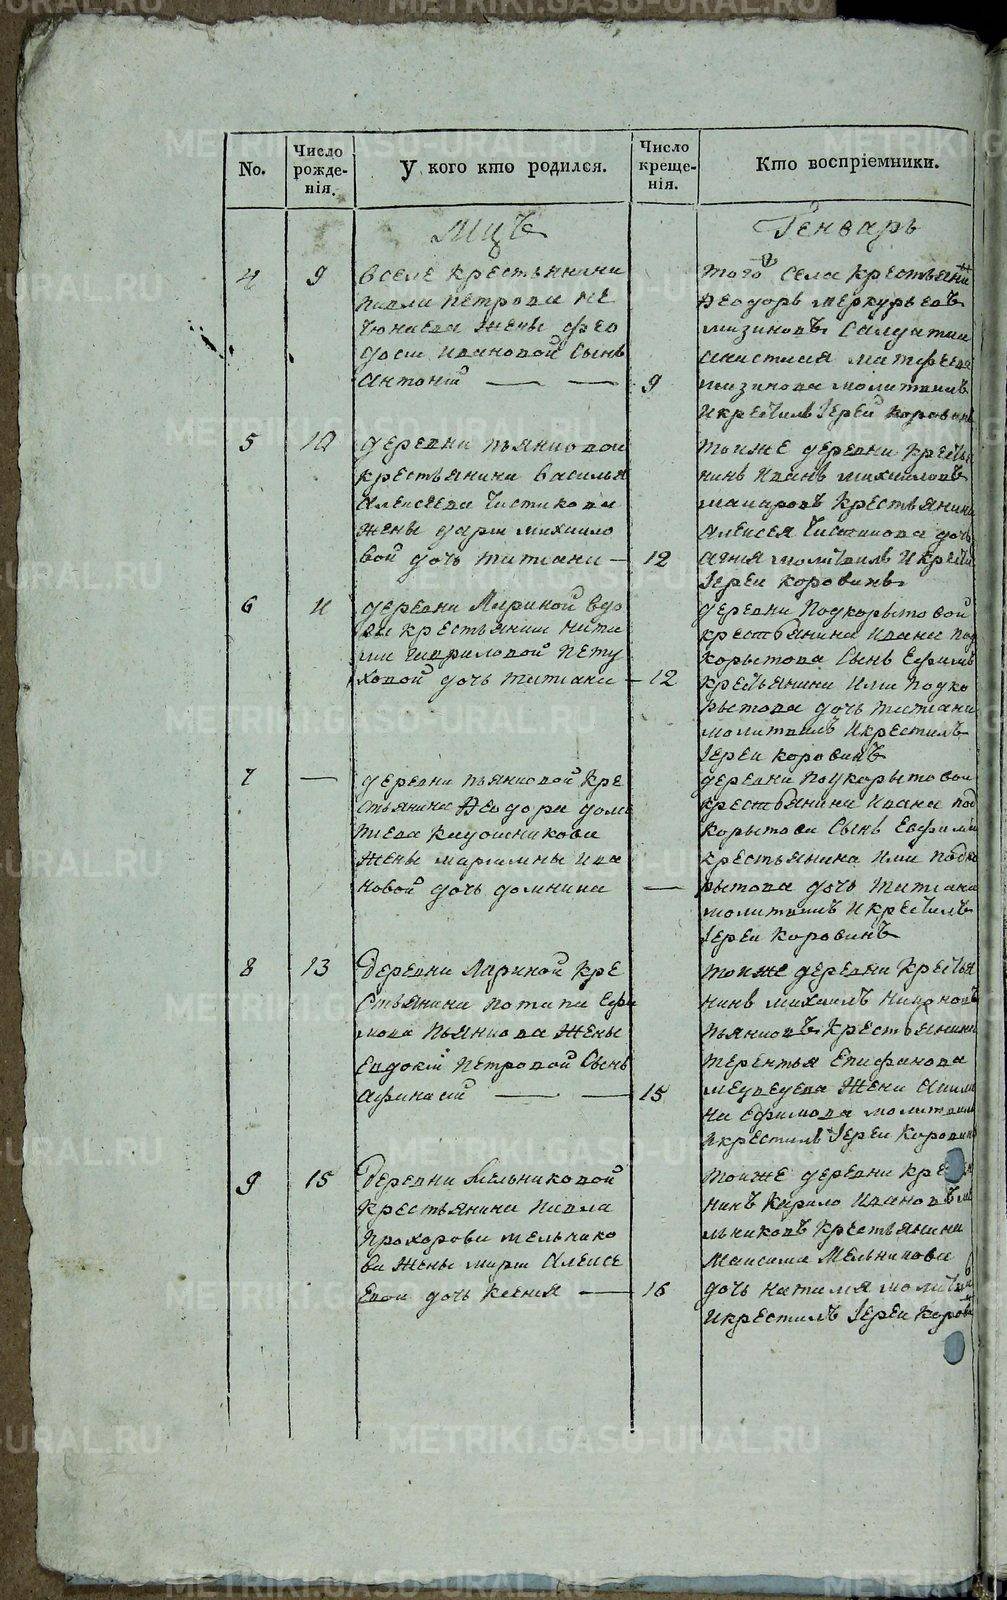 No.
Число рожде-нія.
У кого кто родился.
Число креще-нія.
Кто воспріемники.
Мцъ
Генварь
4
9
вселе крестьянина
павла петрова не
жены фео
доси ивановой сынъ
антоній
9
того села крестьянинъ
Ѳеодоръ меркурьевъ
мизиновъ салдатка
анастасия матфеева
мизинова молитвилъ
икрестилъ Іерей коровинъ
5
10
деревни пьянковой
крестьянина василья
алексеева чистякова
жены дарьи михаило
вой дочь татиана
12
тойже деревни крестья
нинъ иванъ михаиловъ
макаровъ крестьянина
алексея чистякова дочь
агния молитвилъ икрести
Іереи коровинъ
6
11
деревни Лариной вдо
вы крестьянки ната
лии гавриловой пету
ховой дочь татиана
12
деревни Подкорытовой
крестьянина ивана под
корытова сынъ Ефимъ
крестьянина или подко
рытова дочь татиана
молитвилъ икрестилъ
Іереи коровинъ
7
деревни пьянковой кре
стьянина Ѳеодора доме
тиева
жены марианны ива
новой дочь домнина
деревни подкорытовои
крестьянина ивана под
корытова сынъ Ефимъ
крестьянина или подко
рытова дочь татиана
молитвилъ икрестилъ
Іереи коровинъ
8
13
деревни Лариной кре
стьянина потапа ефи
мова пьянкова жены
евдокіи петровой сынъ
афанасій
15
тойже деревни крестья
нинъ михаилъ никоновъ
пьянковъ крестьянина
терентья епифанова
медведева жена акили
на ефимова молитвилъ
икрестилъ Іереи коровинъ
9
15
деревни Мельниковой
крестьянина павла
прохорова мельнико
ва жены марьи алексе
евои дочь ксения
16
тойже деревни кре
нинъ карило ивановъ ме
льниковъ крестьянина
максима мельникова
дочь наталия молитвилъ
икрестилъ Іереи корови
METRIKI.GASO-URAL.RU